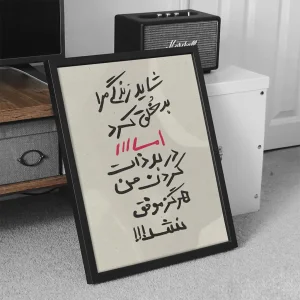 Marshall
شاید زندگی مرا
بدخلق کرد
اما!!!
در بد ذات
کردن من
هرگز موفق
نشد!!!